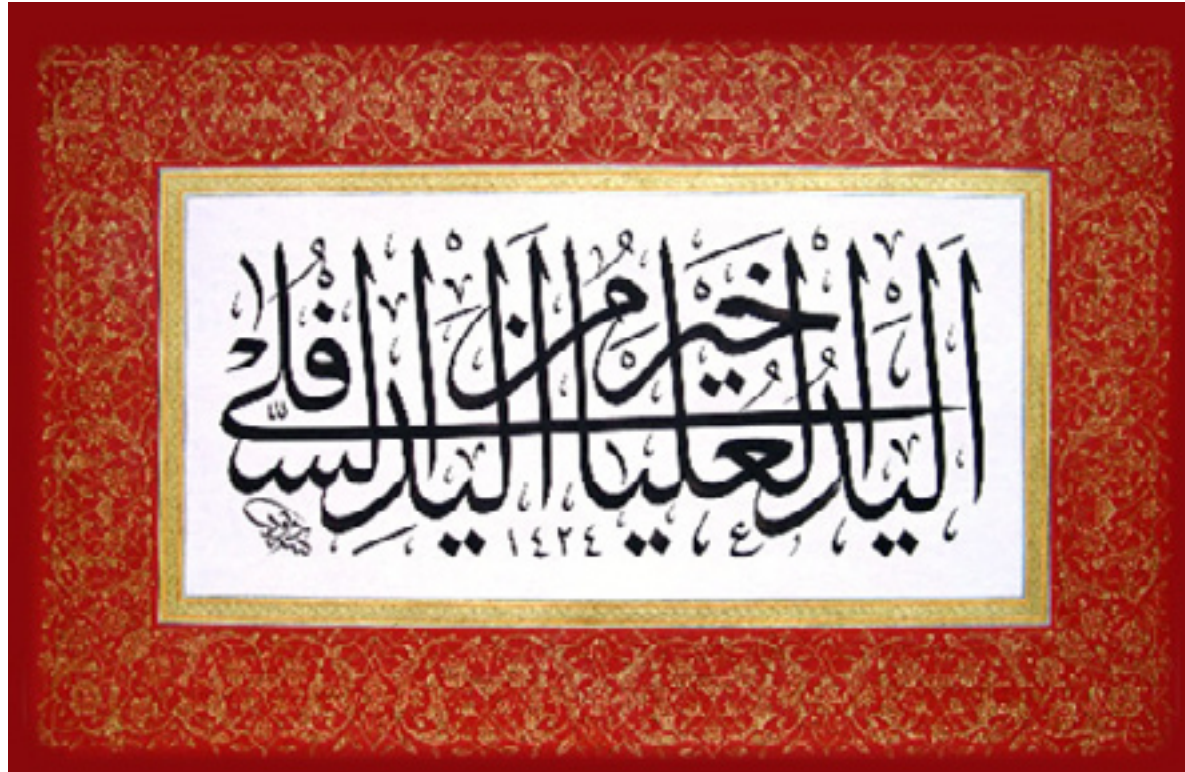 اَليَدُ العُليَا خَيْرٌ مِنَ اليَدِ السُّفْلَى
١٤٢٤